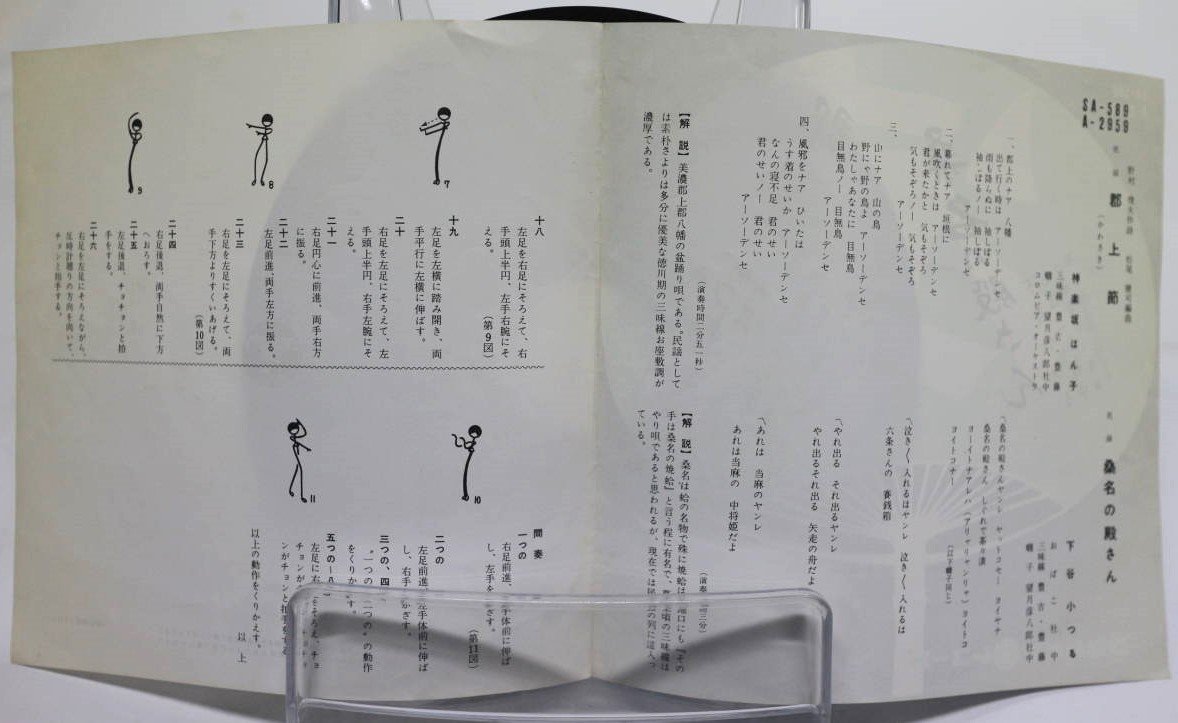 SA-589
A-2959
郡上節
(かわさき)
神楽坂はん子
三味線 豊吉・豊藤
囃子 望月信八郎社中
コロムビア・オーケストラ
一、郡上のナア 八幡
出て行く時は アーソーデンセ
雨も降らぬに 袖しぼる
袖しぼるノー 袖しぼる
アーソーデンセ
二、暮れてナア 垣根に
風吹くときは アーソーデンセ
君が来たかと 気もそぞろ
気もそぞろノー 気もそぞろ
アーソーデンセ
三、
山にナア 山の鳥
野にゃ野の鳥よ アーソーデンセ
わたしゃあなたに 目無鳥
目無鳥ノー 目無鳥
アーソーデンセ
四、風邪をナア ひいたは
うす着のせいか アーソーデンセ
なんの寝不足 君のせい
君のせいノー 君のせい
アーソーデンセ
(演奏時間二分五一秒)
【解説】美濃郡上郡八幡の盆踊り唄である。民謡として
は素朴さよりは多分に優美な徳川期の三味線お座敷調が
濃厚である。
桑名の殿さん
下谷小つる
おばこ社中
三味線 豊吉・豊藤
囃子 望月信八郎社中
〽桑名の殿さんヤンレ ヤットコセー ヨイヤナ
桑名の殿さん しぐれで茶々漬
ヨーイトナアレハ(アリャリャンリャ)ヨイトコ
ヨイトコナー
(以下囃子同上)
〽泣き〳〵入れるはヤンレ 泣き〳〵入れるは
六条さんの 賽銭箱
〽やれ出る それ出るヤンレ
やれ出るそれ出る 矢走の舟だよ
〽あれは 当麻のヤンレ
あれは当麻の 中将姫だよ
【解説】桑名は蛤の名物で殊に焼蛤は
手は桑名の焼蛤』と言う程に有名で、
やり唄であると思われるが、現在では
ている。
十八
左足を右足にそろえて、右
手頭上半円、左手右腕にそ
える。
(第9図)
十九
左足を左横に踏み開き、両
手平行に左横に伸ばす。
二十
右足を左足にそろえて、左
手頭上半円、右手左腕にそ
える。
二十一
右足円心に前進、両手右方
に振る。
二十二
左足前進、両手左方に振る。
二十三
右足を左足にそろえて、両
手下方よりすくいあげる。
(第10図)
二十四
右足後退、両手自然に下方
へおろす。
二十五
左足後退、チョチョンと拍
手をする。
二十六
右足を左足にそろえながら、
反時計廻りの方向を向いて、
チョンと拍手する。
7
8
9
間奏
一つの
右足前進、
し、左手
(第11図)
二つの
左足前進、
し、右手
三つの、四
"一つの
の動作
をくりか
五つの
左足に右
以上の動作をくりかえす。
以上
10
11